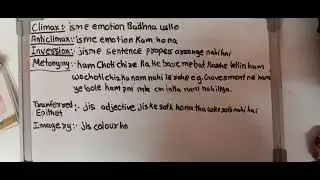 Climax:- isme emotion Badhna usko
Anticlimax:- isme emotion Kam hona
Invession:- jisme sentence proper arrange nahi hai
Metonymy:- ham choti chize Ra ke bare me bat Karte
wo choti chiz ka nam nahi e.g. Government ne ham
ye bole ham pm ka nam nahi
Tranferred:- jis adjective jis ke sath hona tha wo ke sath nahi hai
Epithet
Imagery:- jis colour ho